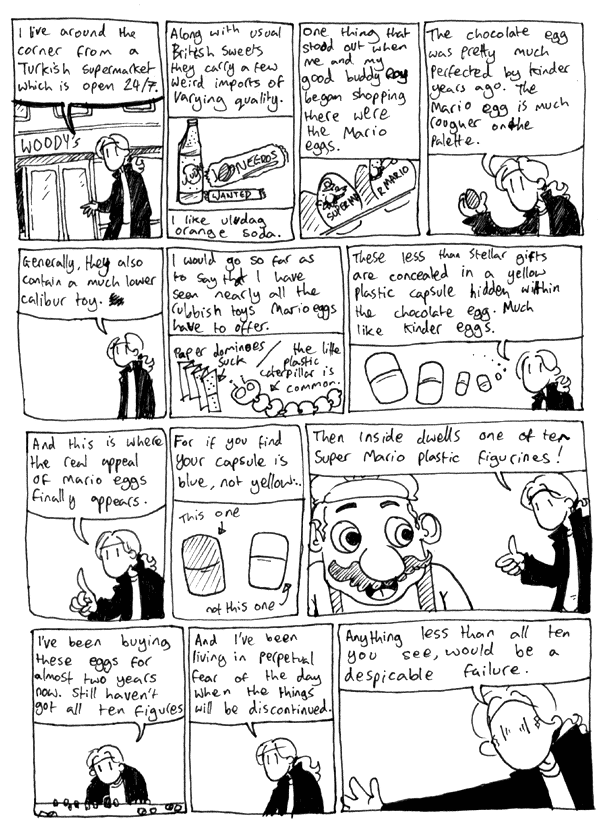 I live around the
corner from a
Turkish Supermarket
which is open 24/7.
WOODY's
Along with usual
British Sweets
they carry a few
weird imports of
varying quality.
NEGROS
WANTED
I like uludag
orange soda.
One thing that
stood out when
me and my
good buddy Roy
began shopping
there were
the Mario
eggs.
SUPER MA
R MARIO
The chocolate egg
was pretty much
perfected by kinder
years ago. The
Mario egg is much
rougher on the
Palette.
Generally, they also
contain a much lower
calibur toy.
I would go so far as
to say that I have
seen nearly all the
rubbish toys Mario eggs
have to offer.
Paper dominoes
suck
the little
plastic
caterpillar is
common.
These less than Stellar gifts
are concealed in a yellow
Plastic capsule hidden within
the chocolate egg. Much
like kinder eggs.
And this is where
the real appeal
of Mario eggs
finally appears.
For if you find
your capsule is
blue, not yellow...
This one
not this one
Then inside dwells one of ten
Super Mario plastic figurines!
I've been buying
these eggs for
almost two years
now. Still haven't
got all ten figures
And I've been
living in perpetual
fear of the day
when the things
will be discontinued.
Anything less than all ten
you see, would be a
despicable failure.